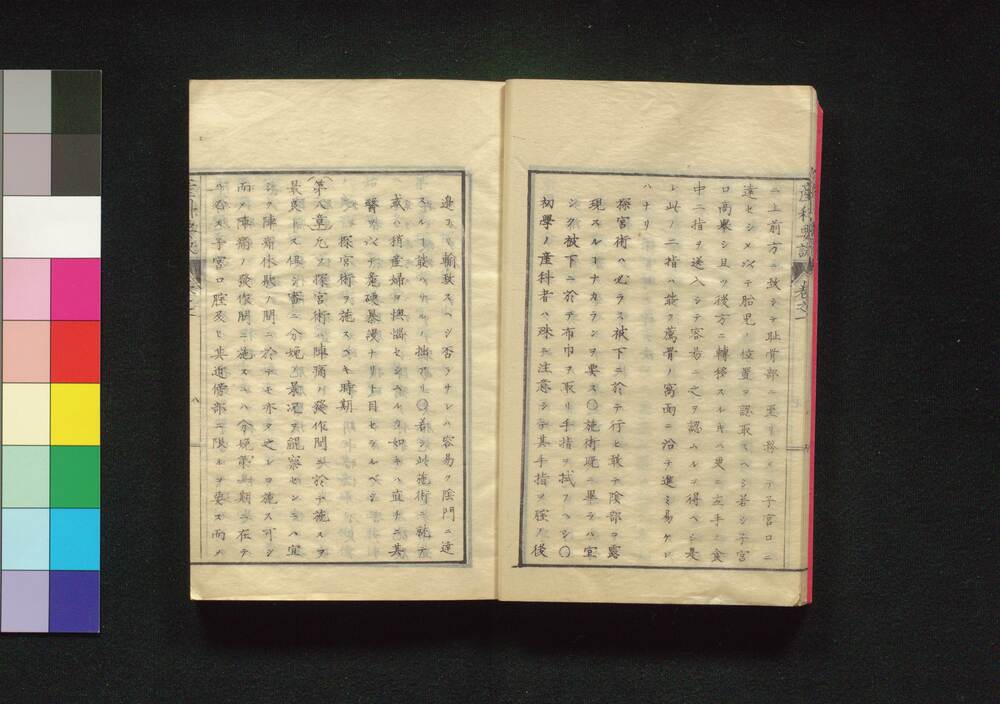 産科要訣 卷之一
ニ上前方ニ放シテ耻骨部ニ至リ務メテ子宮口ニ
達セシメ以テ胎児ノ位置ヲ認取スヘシ若シ子宮
口高擧シ且ツ後方ニ轉移スルキハ更ニ左手ノ食
中二指ヲ送入シテ容易ニ之ヲ認ムルヲ得ヘシ是
レ此ノ二指ハ能ク薦骨ノ窩面ニ沿テ進ミ易ケレ
ハナリ
探宮術ハ必ラス被下ニ於テ行ヒ敢テ陰部ヲ露
現スルヿナカランヲ要ス〇施術既ニ畢ラハ宜
シク被下ニ於テ布巾ヲ取リ手指ヲ拭フヘシ〇
初學ノ産科者ハ殊ニ注意シテ其手指ヲ腟ノ後
邊ヨリ輸致スヘシ否ラサレハ容易ク陰門ニ達
スルヿ能ハサルノ拙アリ〇若シ此施術ニ就テ
或ハ稍産婦ヲ懊惱セシムルカ如キハ直チニ其
醫ヲ以テ麁硬暴慢ナリト目セラルベシ
探宮術ヲ施スベキ時期
(第八章)凡ソ探宮術ハ陣痛ノ發作間ニ於テ施スヲ
最良トス但シ審ニ分娩ノ景况ヲ觀察センニハ宜
シク陣痛休歇ノ間ニ於テモ亦タ之レヲ施ス可シ
而ノ陣痛ノ發作間ニ施スハ分娩第一期ニ在テ
ハ必ス子宮口腟及ヒ其近傍部ニ限ルヲ要ス而ノ
八